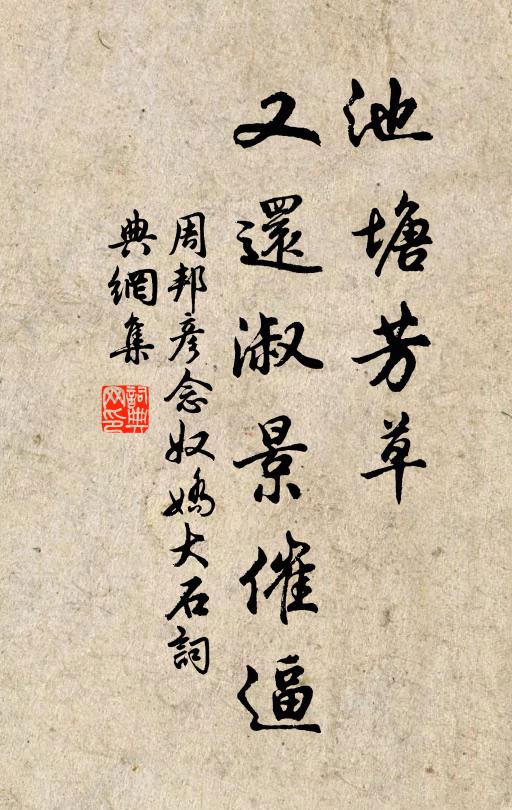 池塘芳草
又還淑景催逼
周邦彥念奴嬌大石詞
典網集
詞典網印